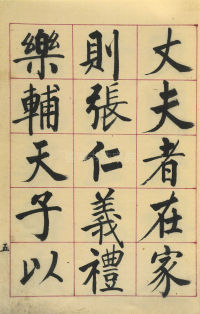 丈夫者在家
則張仁義禮
樂輔天子以
五